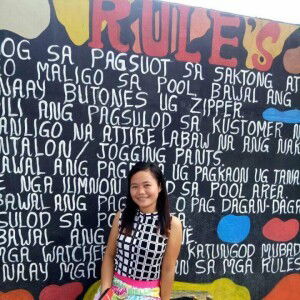 RULE'S
OG SA PAGSUOT SA SAKTONG AT
O MALIGO SA POOL, BAWAL ANG
NAAY BUTONES UG ZIPPER.
ILI ANG PAGSULOD SA KUSTOMER
ANLIGO NA ATTIRE LABAW NA ANG NAK
NTALON / JOGGING PANTS.
AWAL ANG PAG UG PAGKAON UG
E NGA LUMNON SA POOL AREA.
BAWAL ANG PAG DAGAN-DAGA
SULOD SA
BAWAL ANG KATUNGOD
MGA WATCHE
NAAY MGA SA MGA RULES